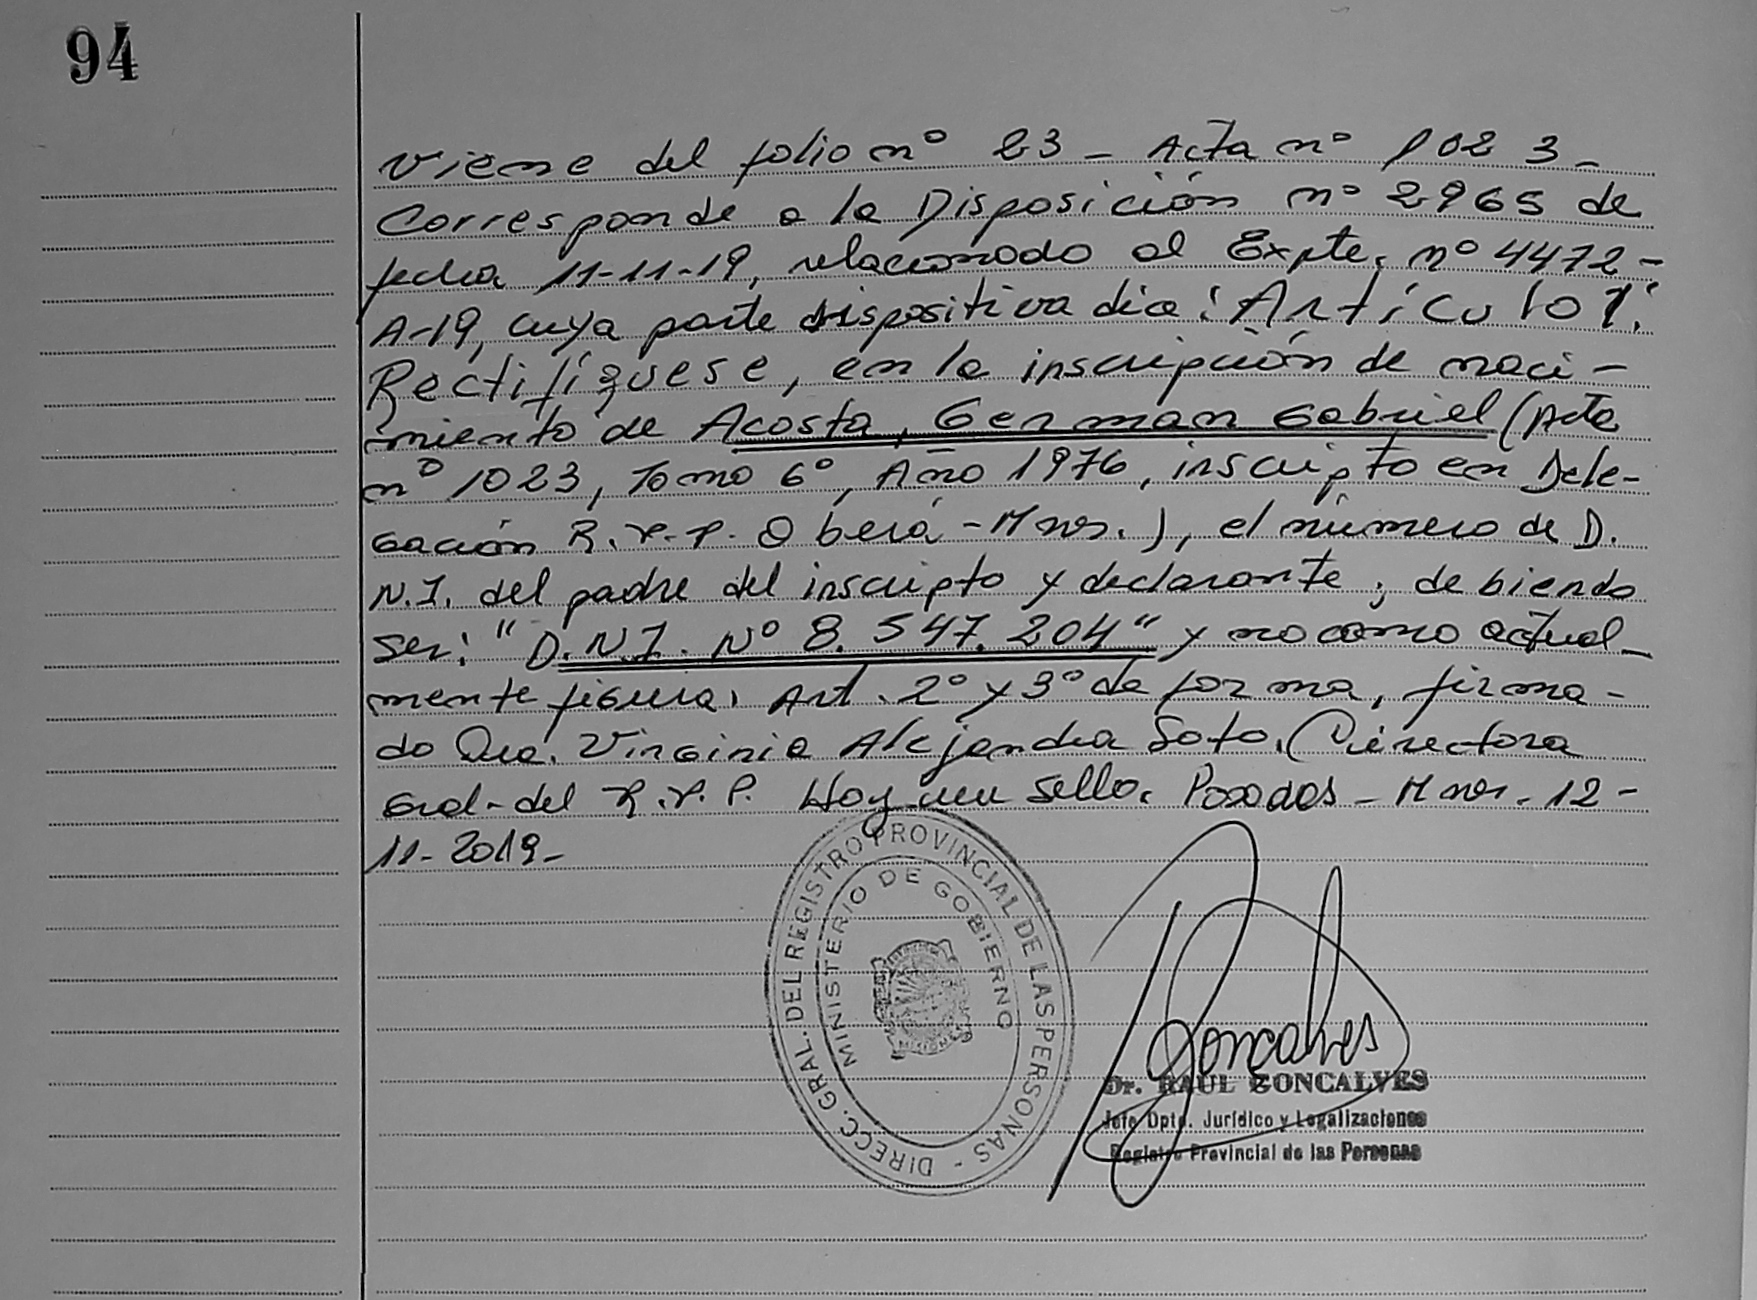 94
Viene del folio nº 23 - Acta nº 1023 -
Corresponde a la Disposición nº 2965 de
fecha 11-11-19, relacionado al Expte. nº 4472-
A-19, cuya parte dispositiva dice: Artículo 1º:
Rectifíquese, en la inscripción de naci-
miento de Acosta, German Gabriel (Acta
nº 1023, Tomo 6º, Año 1976, inscripto en Dele-
gación R.P.P. Oberá - Mnes.), el número de D.
N.I. del padre del inscripto y declarante, debiendo
ser: "D.N.I. Nº 8.547.204" y no como actual-
mente figura. Art. 2º y 3º de forma, firma-
do Dra. Virginia Alejandra Soto. (Directora
Gral. del R.P.P. Hay un sello. Posadas - Mnes. 12-
11-2019-
DIRECC. GRAL. DEL REGISTRO PROVINCIAL DE LAS PERSONAS -
MINISTERIO DE GOBIERNO
MISIONES
Goncalves
Dr. RAUL GONCALVES
Jefe Dpto. Jurídico y Legalizaciones
Registro Provincial de las Personas